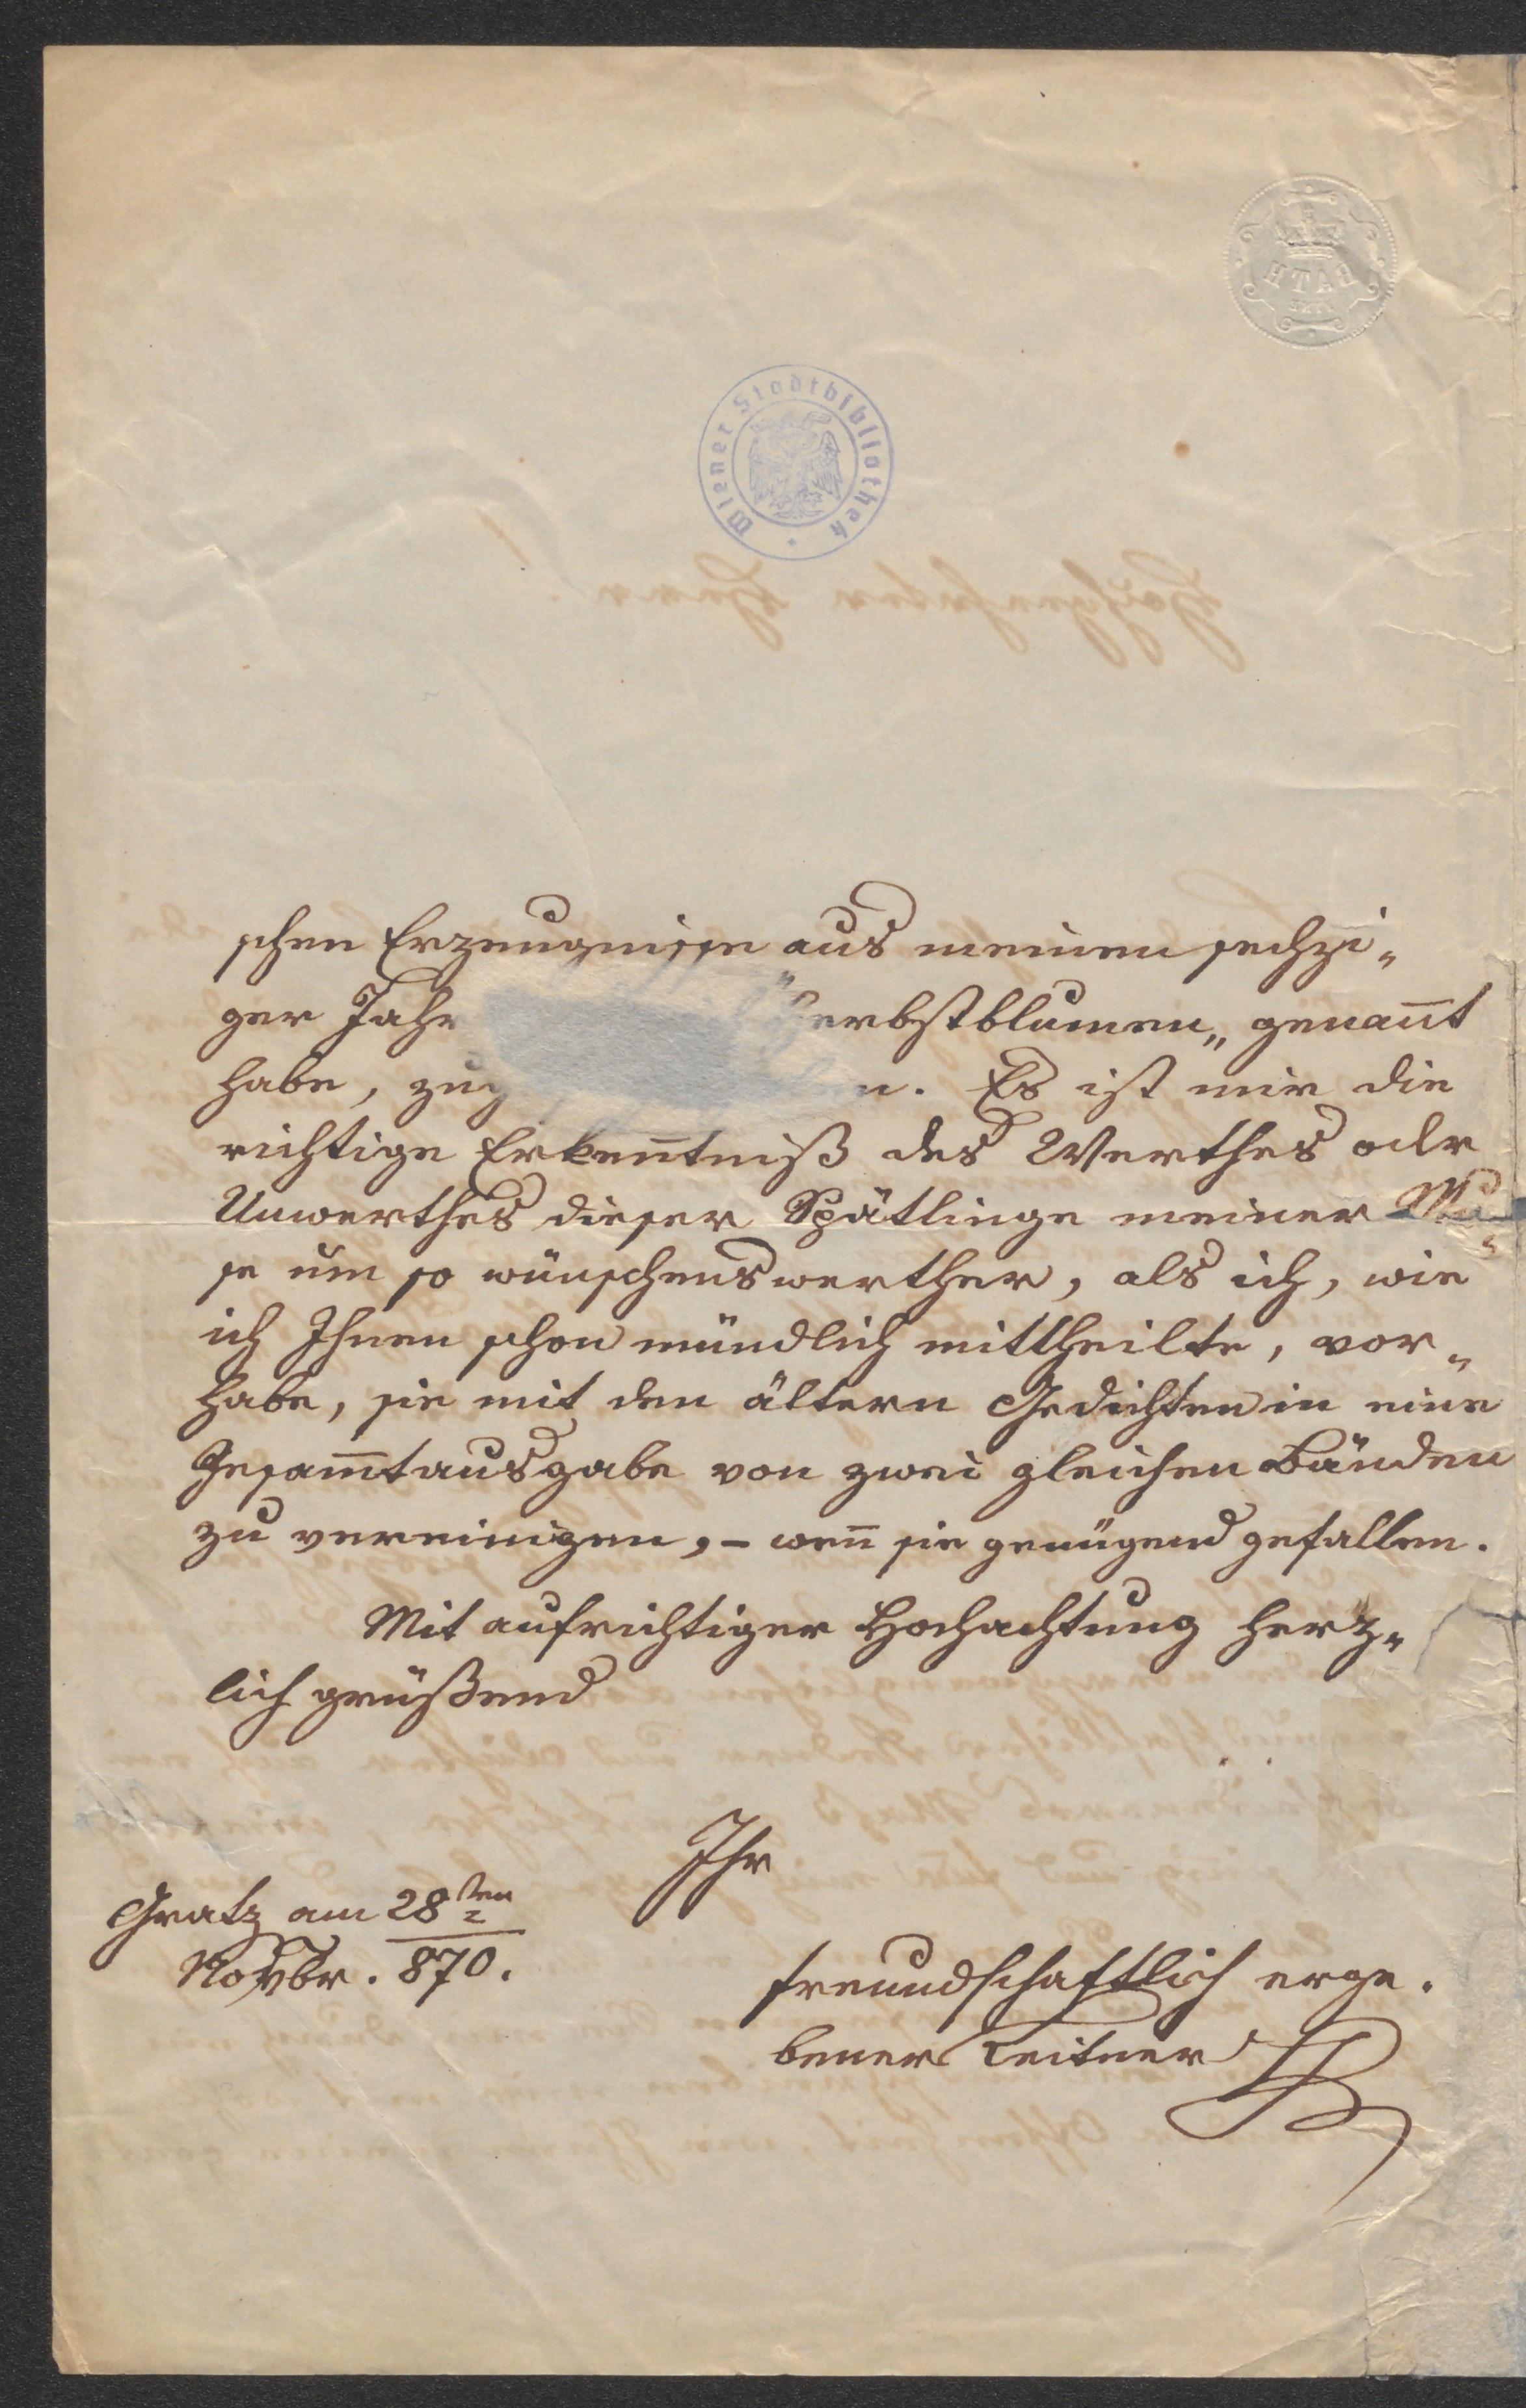 BATH
Wiener Stadtbibliothek
schen Erzeugnisse aus meinen sechzi„
ger Jahr erbstblumen„ genan̄t
habe, zug n. Es ist mir die
richtige Erken̄tniß des Werthes oder
Unwerthes dieser Spätlinge meiner Mu„
se um so wünschenswerther, als ich, wie
ich Ihnen schon mündlich mittheilte, vor„
habe, sie mit den ältern Gedichten in eine
Gesam̄tausgabe von zwei gleichen Bänden
zu vereinigen, – wen̄ sie genügend gefallen.
Mit aufrichtiger Hochachtung herz„
lich grüßend
Ihr
Gratz am 28ten
Novbr. 870.
freundschaftlich erge.
bener Leitner